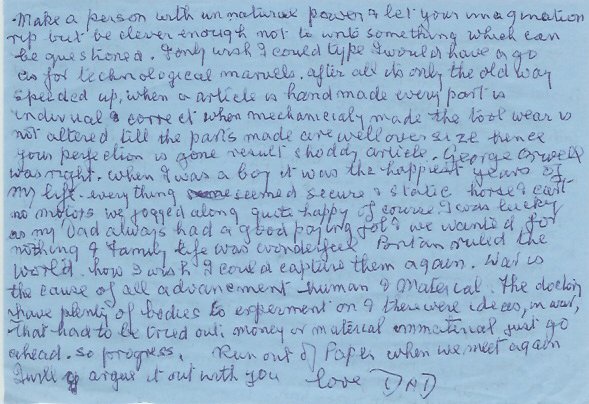 Make a person with unnatural power & let your imagination
rip but be clever enough not to write something which can
be questioned. I only wish I could type I would have a go
as for technological marvels. after all its only the old way
speeded up, when a article is handmade every part is
& correct when made the tool wear is
not altered till the parts made are well over size hence
your perfection is gone result shoddy article. George Orwell
was right. when I was a boy it was the happiest years of
my life. everything seemed secure & static horse & cart
no motors we jogged along quite happy of course I was lucky
as my Dad always had a good paying job & we wanted for
nothing & family life was wonderful Britain ruled the
world. how I wish I could capture them again. War is
the cause of all advancement human & Material. The doctors
have plenty of bodies to experiment on & there were ideas, in war,
that had to be tried out. money or material immaterial just go
ahead. so progress. Run out of Paper when we meet again
argue it out with you love DAD